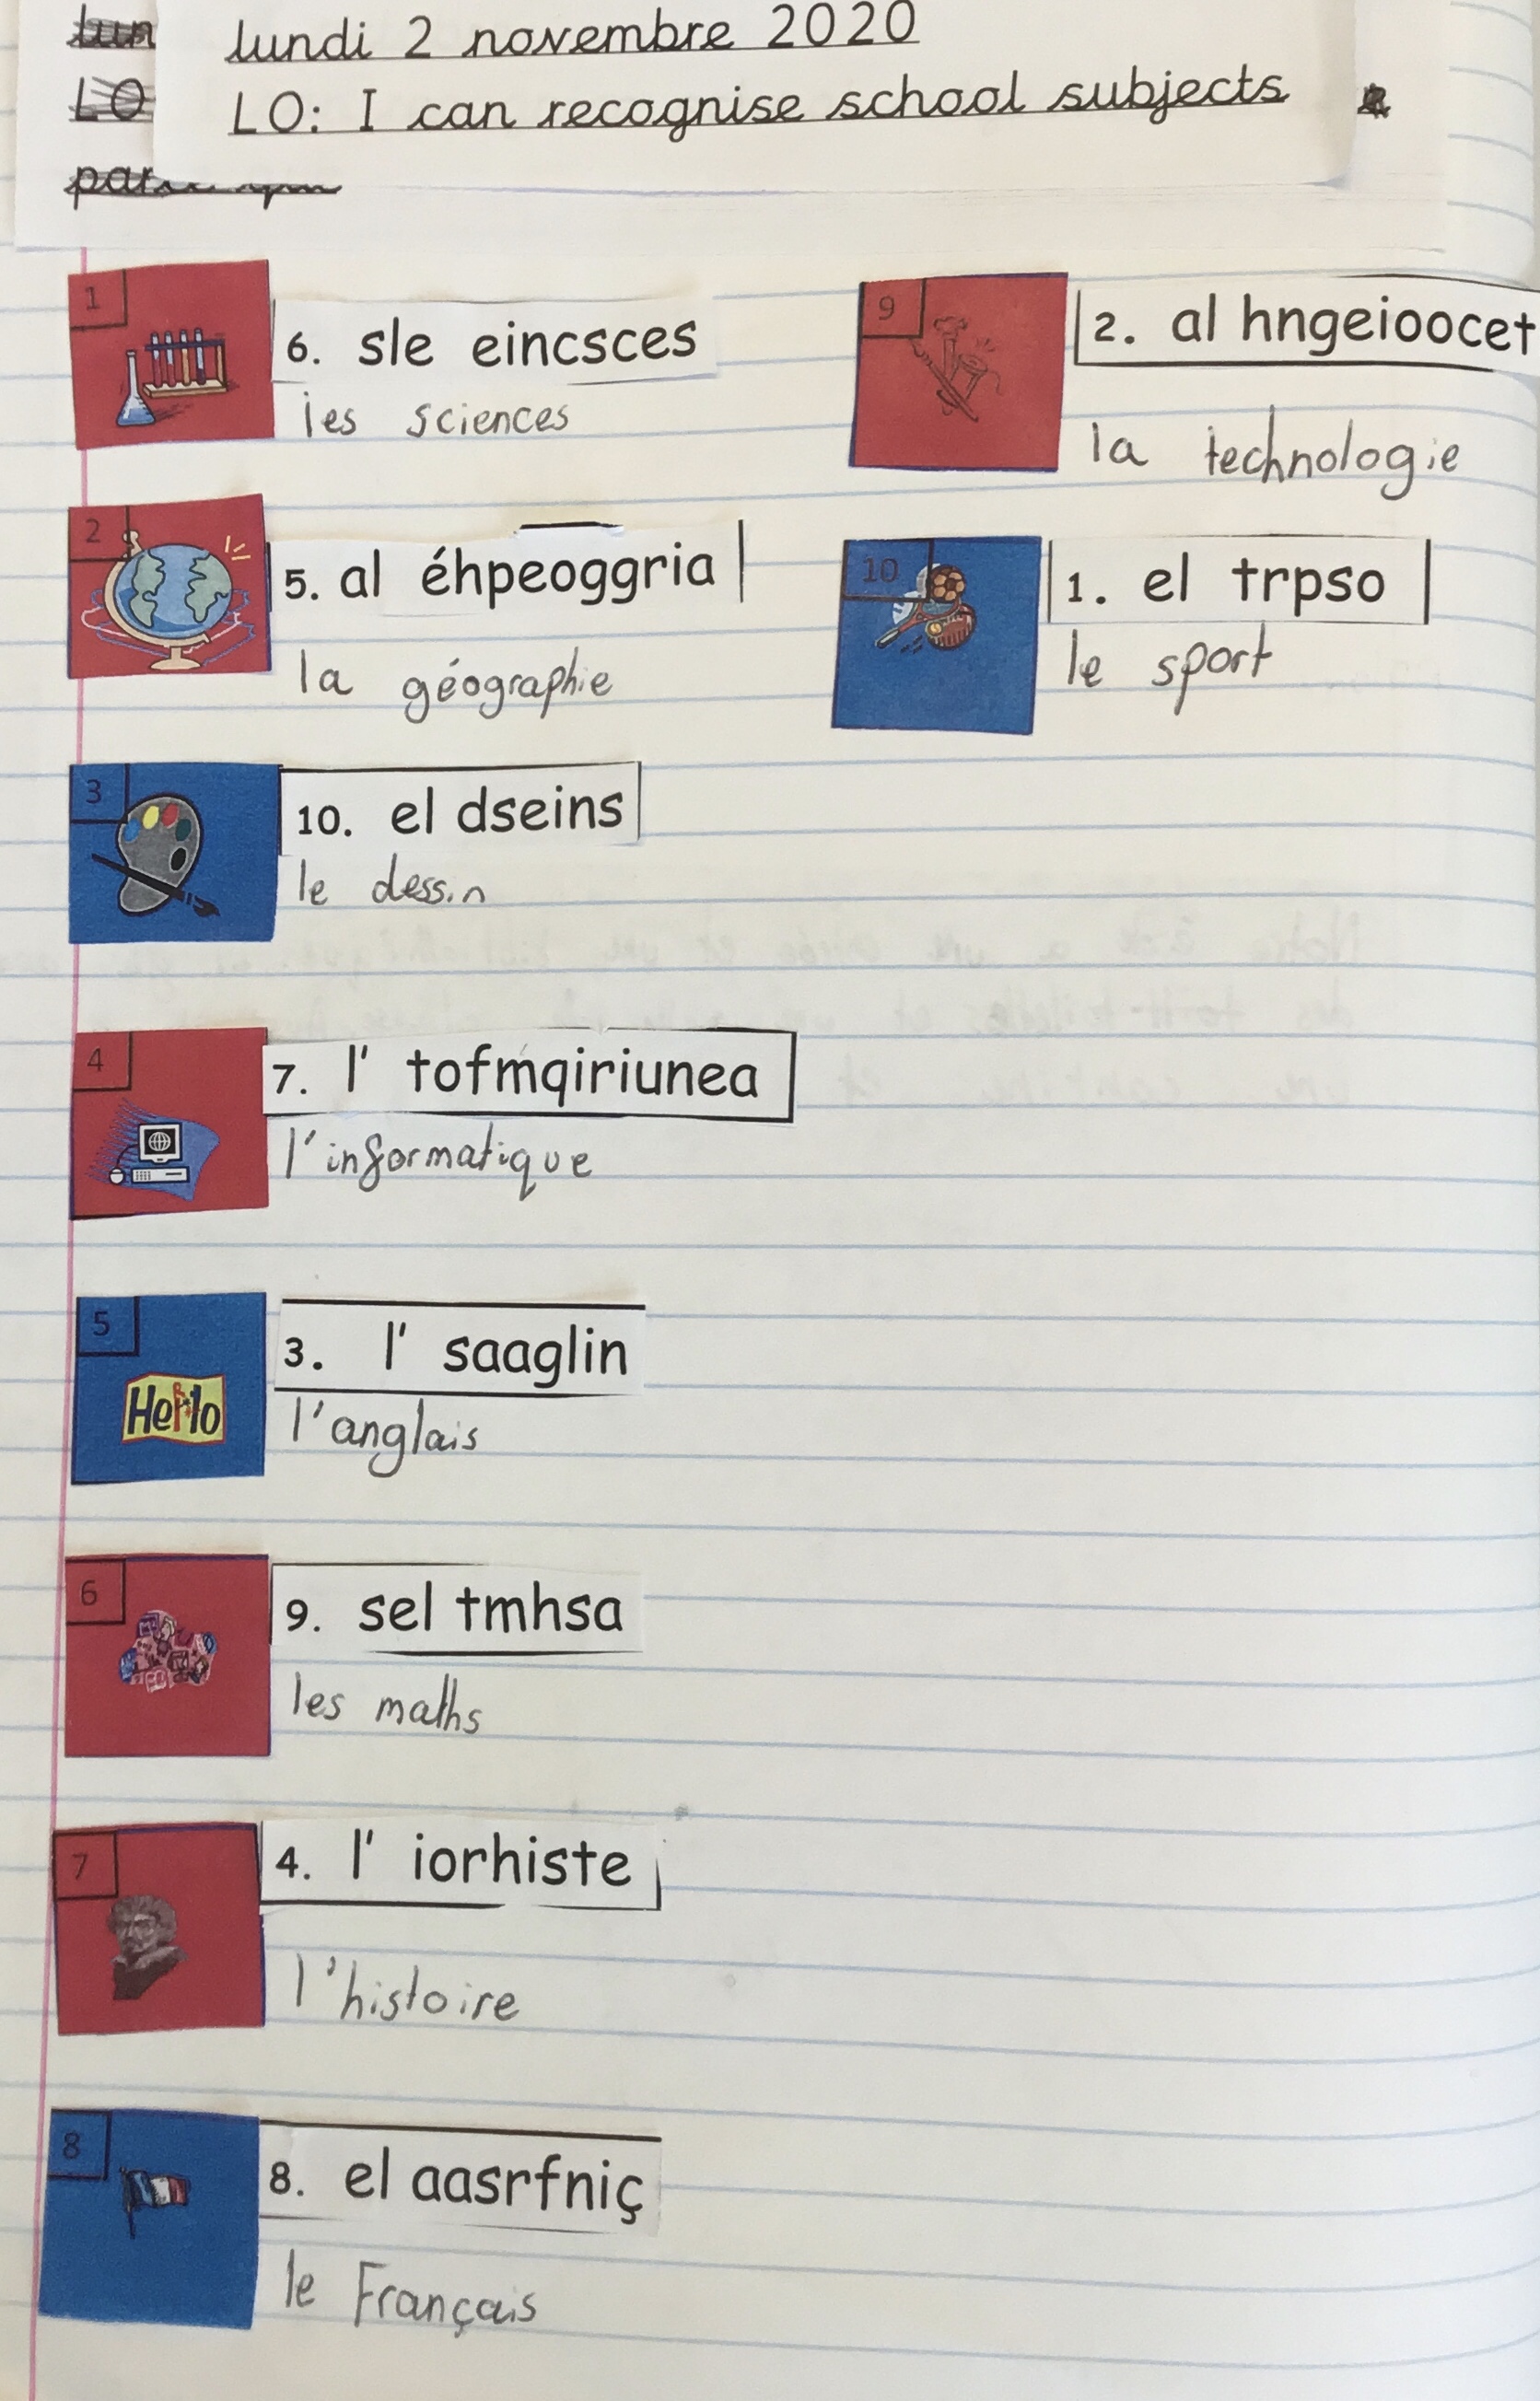 lundi 2 novembre 2020
LO
LO: I can recognise school subjects
1
6. sle eincsces
les sciences
2
5. al éhpeoggria
la géographie
3
10. el dseins
le dessin
4
7. l' tofmqiriunea
l'informatique
5
Hello
3. l' saaglin
l'anglais
6
9. sel tmhsa
les maths
7
4. l' iorhiste
l'histoire
8
8. el aasrfniç
le Français
9
2. al hngeioocet
la technologie
10
1. el trpso
le sport